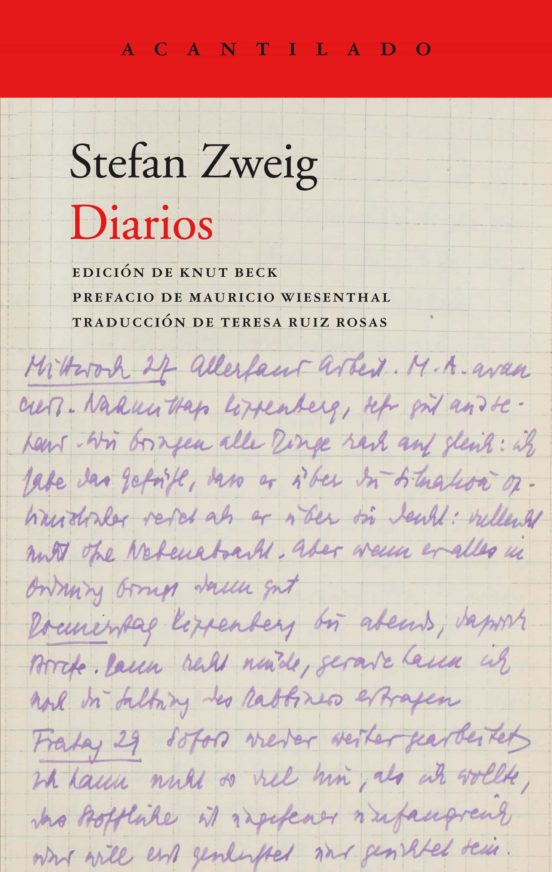 ACANTILADO
Stefan Zweig
Diarios
EDICIÓN DE KNUT BECK
PREFACIO DE MAURICIO WIESENTHAL
TRADUCCIÓN DE TERESA RUIZ ROSAS
Mittwoch 27 Allerhand Arbeit. M. A. avan
ciert. Nachmittags Kippenberg, sehr gut
Wir bringen alle Dinge rasch auf gleich: ich
habe das Gefühl, dass er über die Situation op-
timistischer redet als er über sie denkt: vielleicht
nicht ohne Nebenabsicht. Aber wenn er alles in
Ordnung bringt dann gut
Donnerstag Kippenberg bis abends,
Briefe. Dann recht müde, gerade kann ich
noch die des Rabbiners ertragen
Freitag 29 Sofort wieder weiter gearbeitet
Ich kann nicht so viel hin, als ich wollte,
das Stoffliche ist ungeheuer umfangreich
will erst und gerichtet sein.